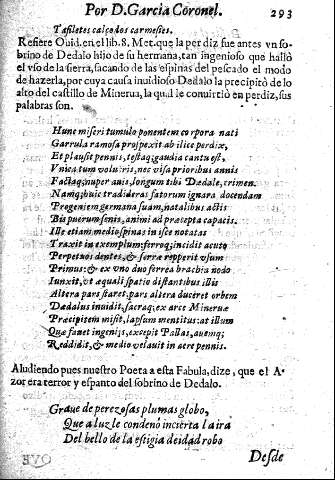 Por D. Garcia Coronel. 293
Tafiletes calçados carmesíes.
Refiere Ouid. en el lib. 8. Met. que la perdiz fue antes vn so-
brino de Dedalo hijo de su hermana, tan ingenioso que halló
el vso de la sierra, sacando de las espinas del pescado el modo
de hazerla, por cuya causa inuidioso Dedalo la precipitò de lo
alto del castillo de Minerua, la qual le conuirtiò en perdiz, sus
palabras son.
Hunc miseri tumulo ponentem corpora nati
Garrula ramosa prospexit ab ilice perdix,
Et plausit pennis, testaq; gaudia cantu est,
Vnica tum volucris, nec visa prioribus annis
Factaq; nuper auis, longum tibi Dædale, crimen.
Namq; huic tradideras fatorum ignara docendam
Progeniem germana suam, natalibus actis
Bis puerum senis, animi ad præcepta capacis.
Ille etiam medio spinas in pisce notatas
Traxit in exemplum: ferroq; incidit acuto
Perpetuos dentes, & serræ repperit vsum
Primus: & ex vno duo ferrea brachia nodo
Iunxit, vt æquali spatio distantibus illis
Altera pars staret: pars altera duceret orbem
Dædalus inuidit, sacraq; ex arce Mineruæ
Præcipitem misit, lapsum mentitus: at illum
Quæ fauet ingenijs, excepit Pallas, auemq;
Reddidit, & medio velauit in aere pennis.
Aludiendo pues nuestro Poeta a esta Fabula, dize, que el A-
zor era terror y espanto del sobrino de Dedalo.
Graue de perezosas plumas globo,
Que a luz le condenó incierta la ira
Del bello de la estigia deidad robo
Desde